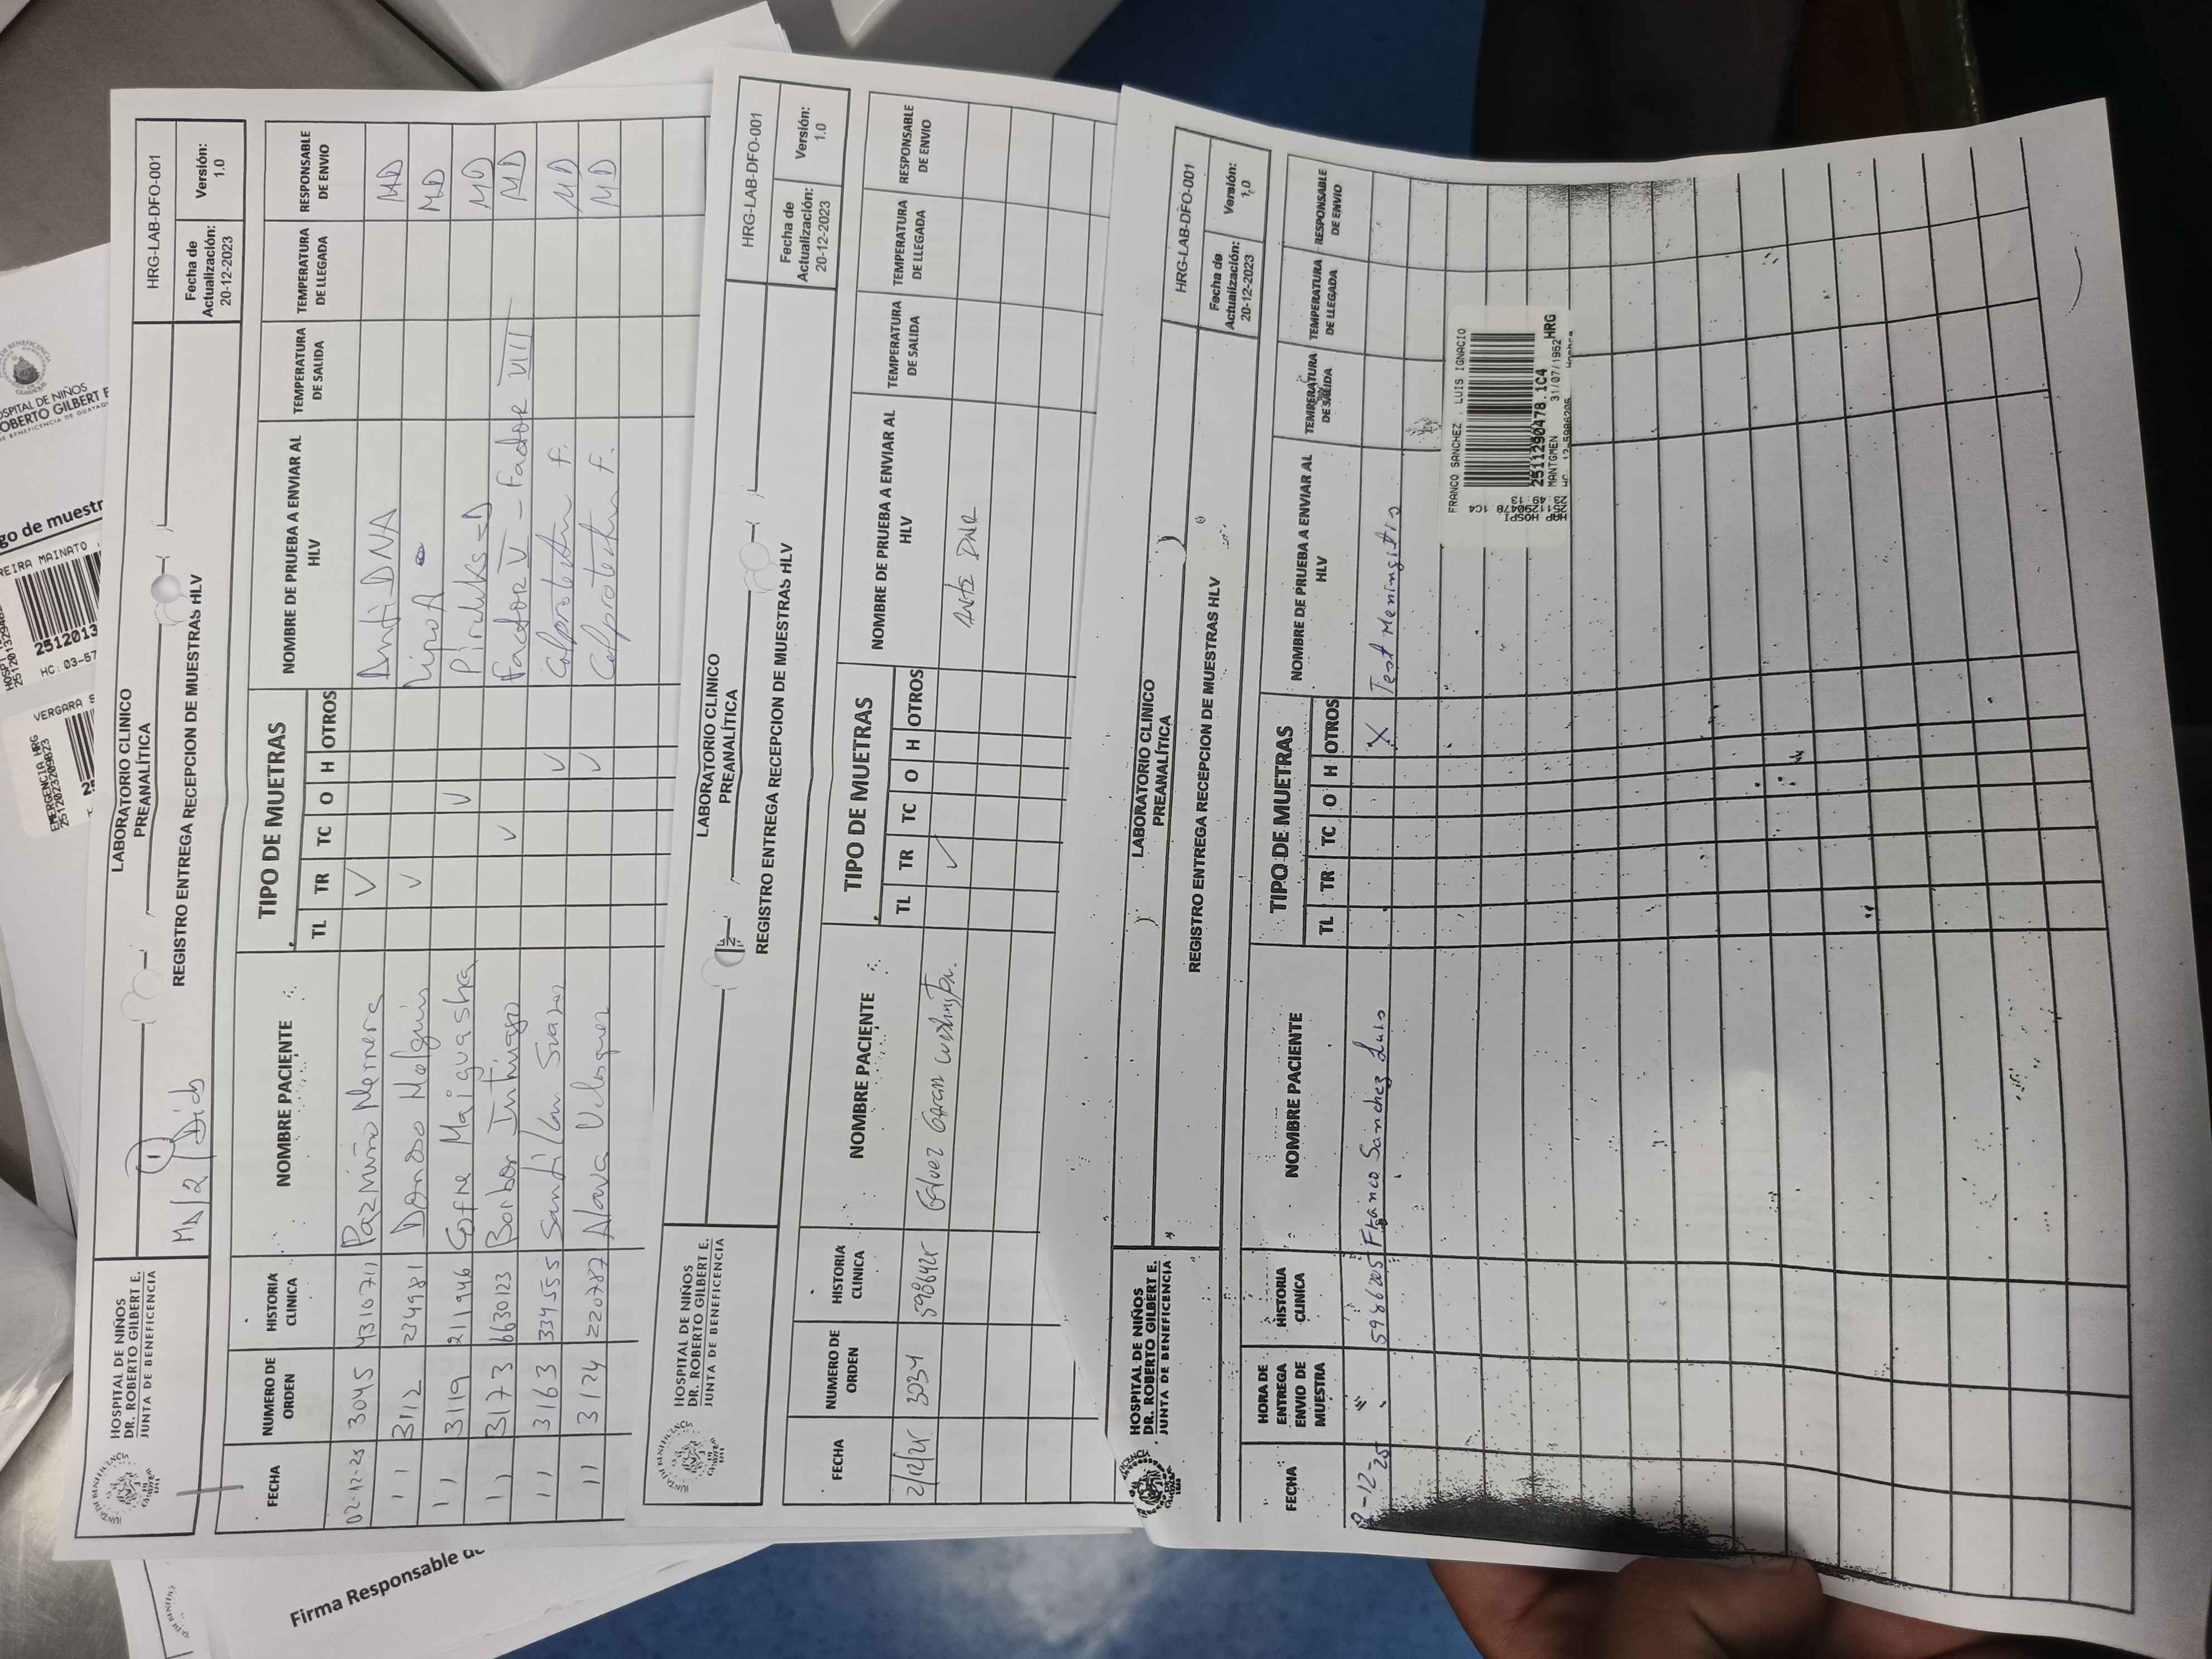 HOSPITAL DE NIÑOS
DR. ROBERTO GILBERT E.
JUNTA DE BENEFICENCIA
LABORATORIO CLINICO
PREANALÍTICA
REGISTRO ENTREGA RECEPCION DE MUESTRAS HLV
HRG-LAB-DFO-001
Fecha de Actualización: 20-12-2023
Versión: 1.0
FECHA NUMERO DE ORDEN HISTORIA CLINICA NOMBRE PACIENTE TIPO DE MUETRAS NOMBRE DE PRUEBA A ENVIAR AL HLV TEMPERATURA DE SALIDA TEMPERATURA DE LLEGADA RESPONSABLE DE ENVIO
TL TR TC O H OTROS
02-12-25 3045 4310711 Pazmiño ✓ Anti DNA MD
11 3112 234981 Donoso Holguin ✓ Lipo A MD
11 3119 211946 Cofre Maiguashca ✓ MD
11 3173 6630123 Borbor Intriago ✓ Factor V - Factor VIII MD
11 3163 334555 Suarez ✓ Calprotectin F. MD
11 3124 220787 Alava Velasquez ✓ Calprotectin F. MD
HOSPITAL DE NIÑOS
DR. ROBERTO GILBERT E.
JUNTA DE BENEFICENCIA
LABORATORIO CLINICO
PREANALÍTICA
REGISTRO ENTREGA RECEPCION DE MUESTRAS HLV
HRG-LAB-DFO-001
Fecha de Actualización: 20-12-2023
Versión: 1.0
FECHA NUMERO DE ORDEN HISTORIA CLINICA NOMBRE PACIENTE TIPO DE MUETRAS NOMBRE DE PRUEBA A ENVIAR AL HLV TEMPERATURA DE SALIDA TEMPERATURA DE LLEGADA RESPONSABLE DE ENVIO
TL TR TC O H OTROS
2/12/25 3034 Washington. ✓
HOSPITAL DE NIÑOS
DR. ROBERTO GILBERT E.
JUNTA DE BENEFICENCIA
LABORATORIO CLINICO
PREANALÍTICA
REGISTRO ENTREGA RECEPCION DE MUESTRAS HLV
HRG-LAB-DFO-001
Fecha de Actualización: 20-12-2023
Versión: 1.0
FECHA HORA DE ENTREGA ENVIO DE MUESTRA HISTORIA CLINICA NOMBRE PACIENTE TIPO DE MUETRAS NOMBRE DE PRUEBA A ENVIAR AL HLV TEMPERATURA DE SALIDA TEMPERATURA DE LLEGADA RESPONSABLE DE ENVIO
TL TR TC O H OTROS
-12-25 5986205 Franco Sanchez Luis X Test Meningitis
FRANCO SANCHEZ , LUIS IGNACIO
2511290478.1C4
MANTGMEN 31/07/1952 HRG
HC 12-5986205 Hombre
go de muestr
EIRA MAINATO
2512013
HC: 03-57
VERGARA S
EMERGENCIA HRG
Firma Responsable de